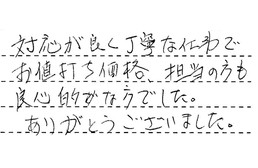 対応が良く丁寧な仕事で
お値打ち価格、担当の方も
良心的な方でした。
ありがとうございました。